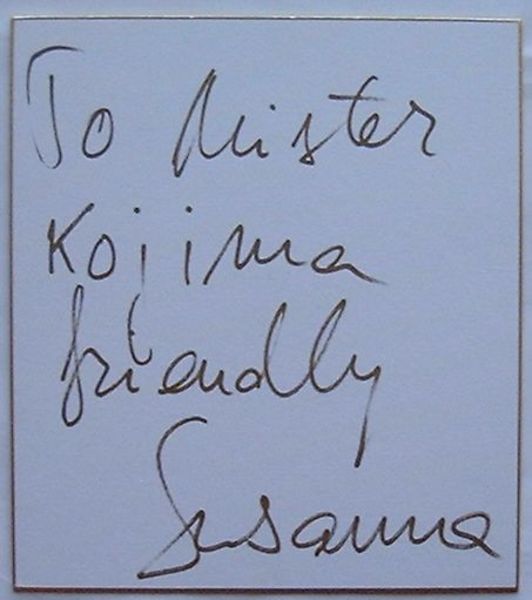 To Mister
Kojima
friendly
Susanna